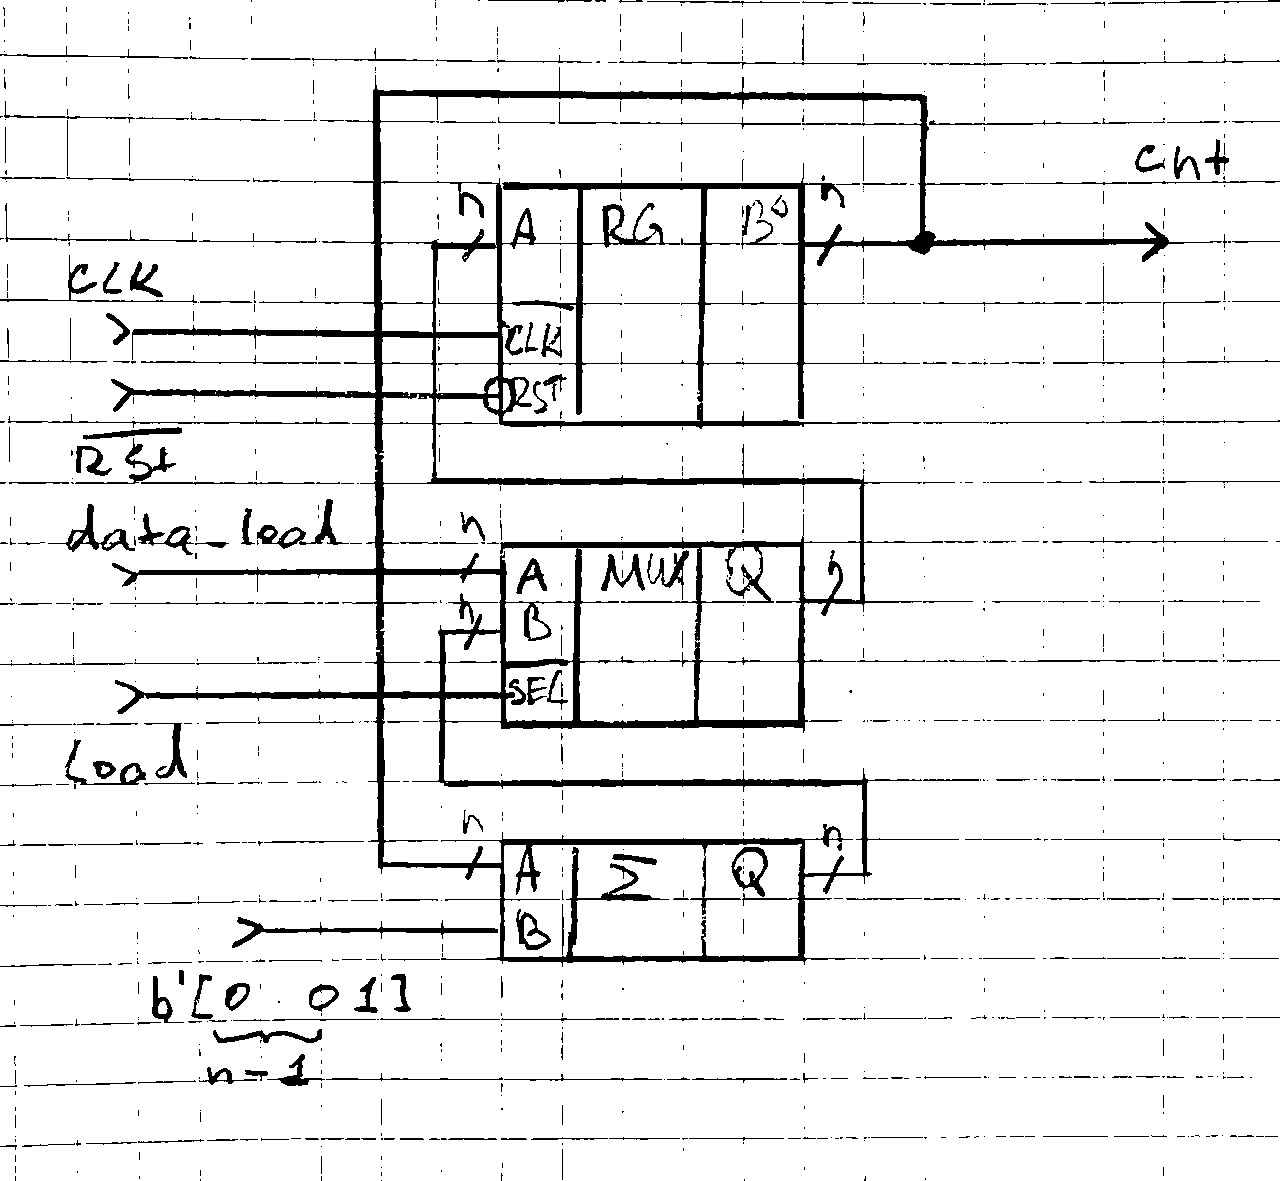 cnt
n
n
A RG B
CLK
CLK
RST
RSt
data_load
n
n
A MUX Q
n
B
SEL
load
n
n
A Σ Q
B
b'[0 01]
n-1